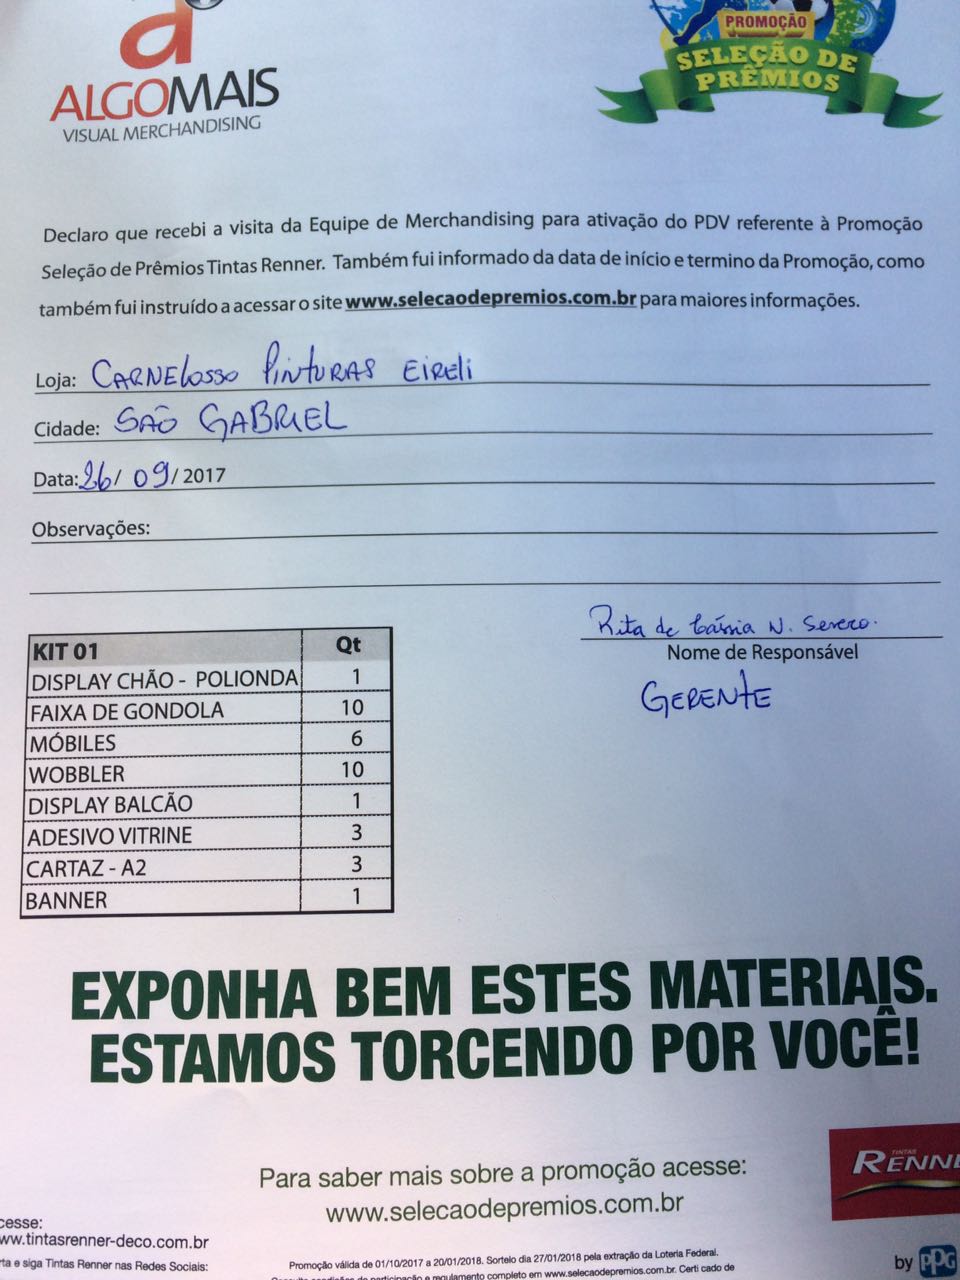 ALGOMAIS
VISUAL MERCHANDISING
PROMOÇÃO
SELEÇÃO DE
PRÊMIOS
Declaro que recebi a visita da Equipe de Merchandising para ativação do PDV referente à Promoção
Seleção de Prêmios Tintas Renner. Também fui informado da data de início e termino da Promoção, como
também fui instruído a acessar o site www.selecaodepremios.com.br para maiores informações.
Loja: CARNELOSSO PINTURAS EIRELI
Cidade: SÃO GABRIEL
Data: 26/ 09 / 2017
Observações:
Rita de Cássia N. Severo.
Nome de Responsável
GERENTE
KIT 01 Qt
DISPLAY CHÃO - POLIONDA 1
FAIXA DE GONDOLA 10
MÓBILES 6
WOBBLER 10
DISPLAY BALCÃO 1
ADESIVO VITRINE 3
CARTAZ - A2 3
BANNER 1
EXPONHA BEM ESTES MATERIAIS.
ESTAMOS TORCENDO POR VOCÊ!
Para saber mais sobre a promoção acesse:
www.selecaodepremios.com.br
TINTAS
RENNE
cesse:
ww.tintasrenner-deco.com.br
rta e siga Tintas Renner nas Redes Sociais:
Promoção válida de 01/10/2017 a 20/01/2018. Sorteio dia 27/01/2018 pela extração da Loteria Federal.
Consulte condições de participação e regulamento completo em www.selecaodepremios.com.br. Certi cado de
by PPG